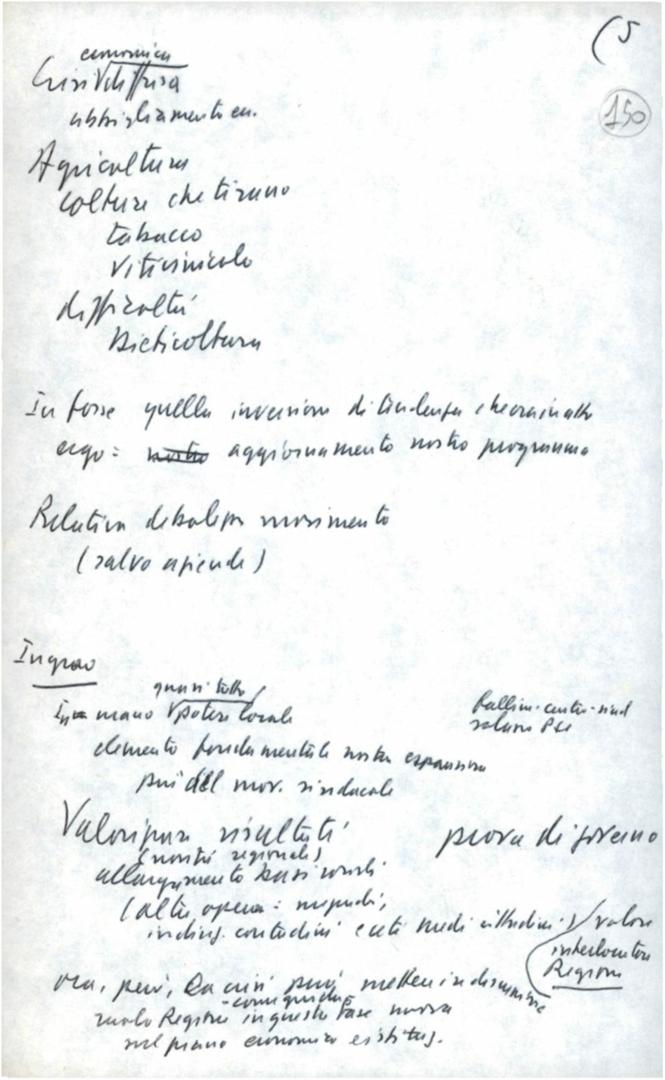 (5
150
economica
Crisi diffusa
abbigliamento ecc.
Agricoltura
colture che tirano
tabacco
vitivinicolo
difficoltà
Bieticoltura
In forse quella inversione di tendenza che era in atto
ergo: nostro aggiornamento nostro programma
Relativa debolezza movimento
(salvo aziende)
Ingrao
quasi tutto
In mano potere locale
fallim. centro-sind
elemento fondamentale nostra espansione
più del mov. sindacale
Valorizzare risultati
prova di governo
(novità regionale)
allargamento basi sociali
(altre operai:
indig. contadini ceti medi cittadini)
valore
interlocutore
Regione
ora, però, la crisi può mettere in discussione
ruolo Regione in questa fase nuova
sul piano economico e istituz.